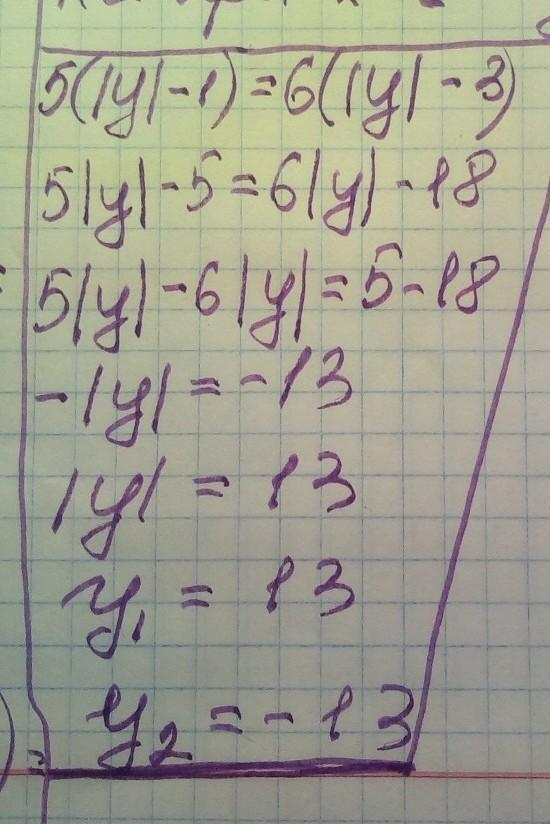 5(|y|-1)=6(|y|-3)
5|y|-5=6|y|-18
5|y|-6|y|=5-18
-|y|=-13
|y|=13
y₁=13
y₂=-13